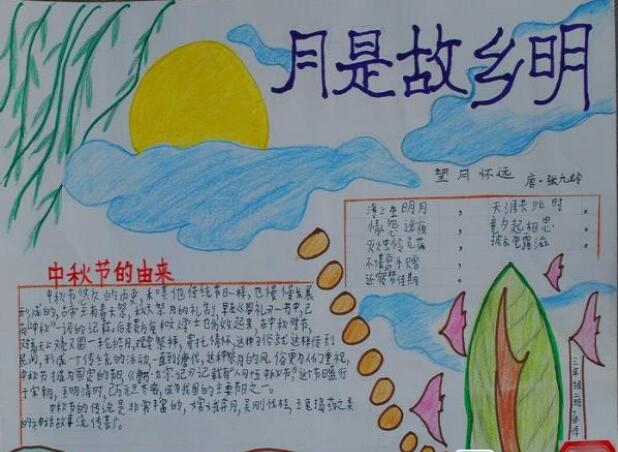 月是故乡明
望月怀远 唐·张九龄
海上生明月，天涯共此时。
情怨遥夜，竟夕起相思。
灭烛怜光满，披衣觉露滋。
不堪盈手赠
还寝梦佳期
中秋节的由来
中秋节悠久的历史，和其他传统节日一样，也慢慢发展
形成的，古帝王有春天祭日，秋天祭月的礼制，早在《周礼》一书中，已
有“中秋”一词的记载。后来贵族和文人学士也仿效起来，在中秋时节，
对着天上又亮又圆一轮皓月，观赏祭拜，寄托情怀，这种习俗就这样传到
民间，形成一个传统的活动，一直到唐代，这种祭月的风俗更为人们重视，
中秋节才成为固定的节日，《唐书·太宗记》记载有“八月十五中秋节”，这个节日盛行
于宋朝，至明清时，已与元旦齐名，成为我国的主要节日之一。
中秋节的传说是非常丰富的，嫦娥奔月，吴刚伐桂，玉兔捣药之类
的神话故事流传甚广。
三年级二班